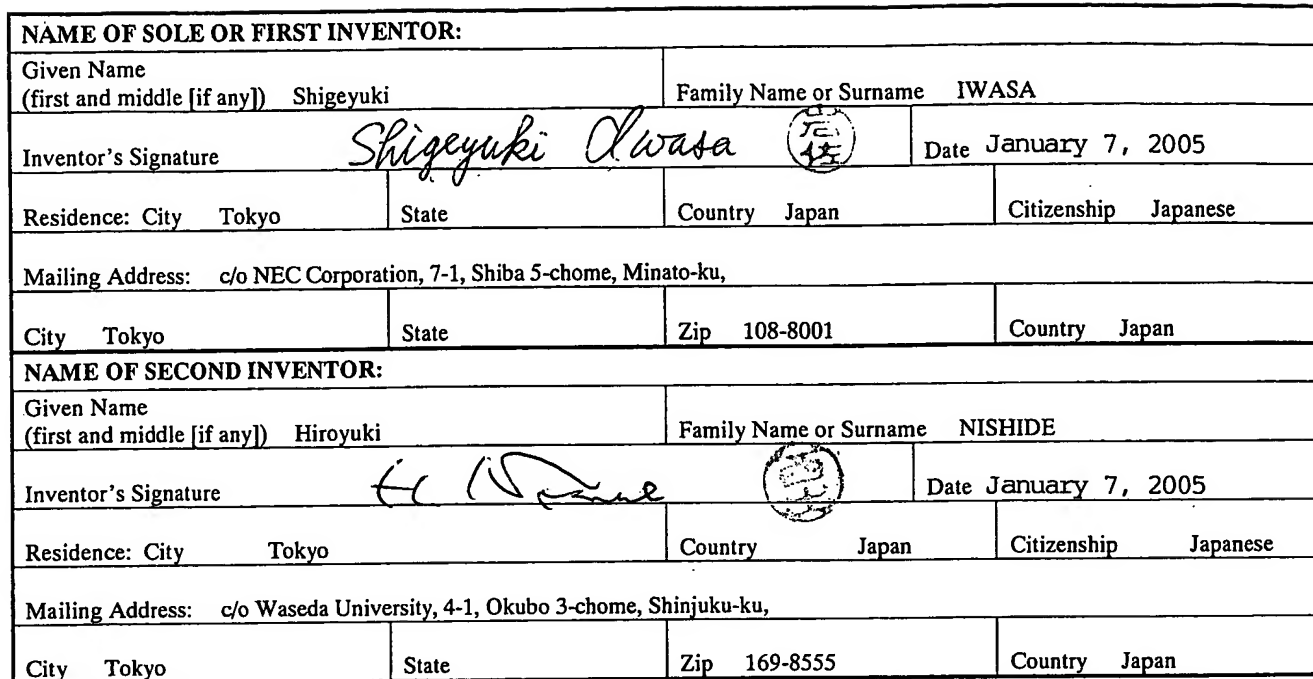 NAME OF SOLE OR FIRST INVENTOR:
Given Name
(first and middle [if any]) Shigeyuki Family Name or Surname IWASA
Inventor's Signature Shigeyuki Iwasa 岩佐 Date January 7, 2005
Residence: City Tokyo State Country Japan Citizenship Japanese
Mailing Address: c/o NEC Corporation, 7-1, Shiba 5-chome, Minato-ku,
City Tokyo State Zip 108-8001 Country Japan
NAME OF SECOND INVENTOR:
Given Name
(first and middle [if any]) Hiroyuki Family Name or Surname NISHIDE
Inventor's Signature Date January 7, 2005
Residence: City Tokyo Country Japan Citizenship Japanese
Mailing Address: c/o Waseda University, 4-1, Okubo 3-chome, Shinjuku-ku,
City Tokyo State Zip 169-8555 Country Japan